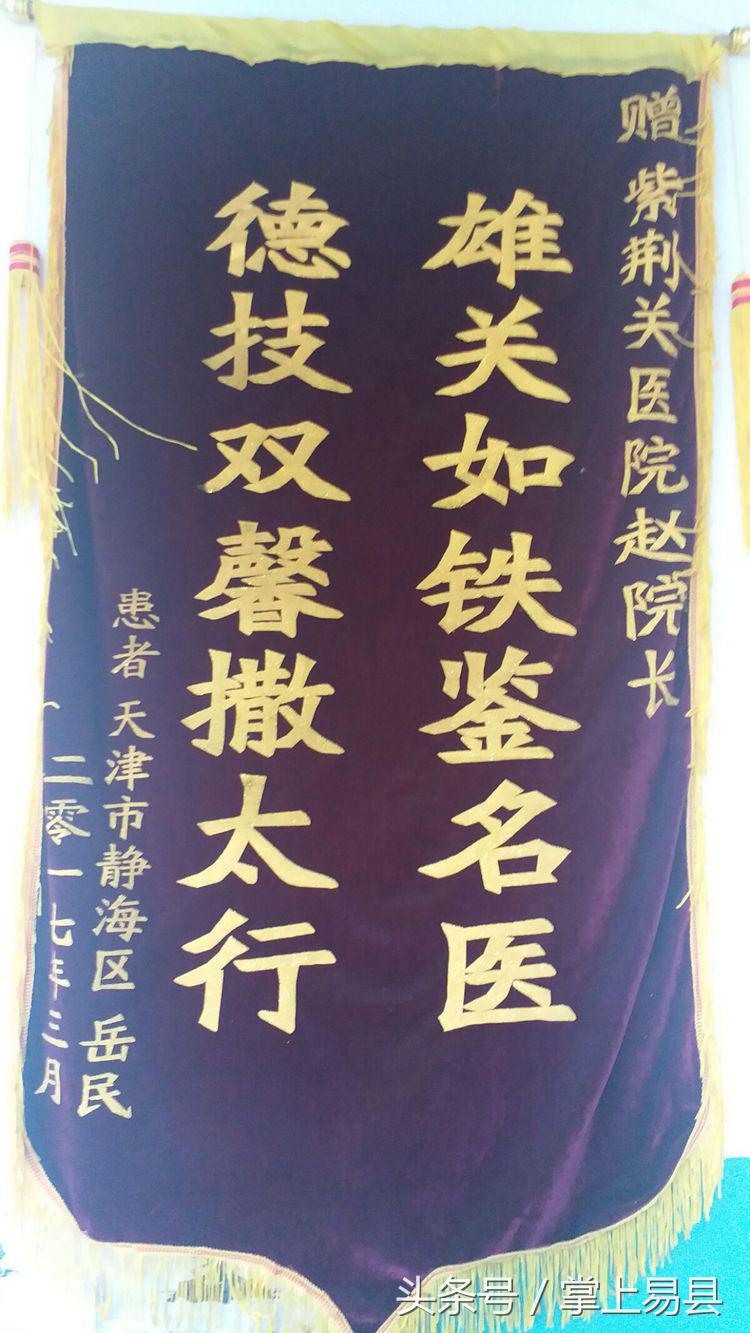 赠 紫荆关医院赵院长
雄关如铁鉴名医
德技双馨撒太行
患者 天津市静海区 岳民
二零一七年三月
头条号/掌上易县